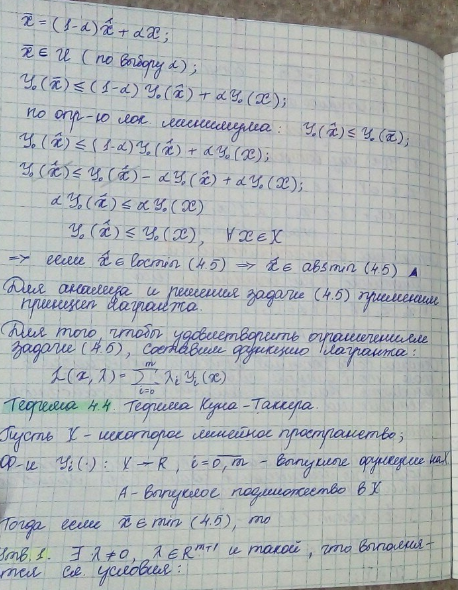 x̄ = (1-α)x̂ + αx;
x̄ ∈ U (по выбору α);
Y₀(x̄) ≤ (1-α) Y₀(x̂) + αY₀(x);
по опр-ю лок минимума: Y₀(x̂) ≤ Y₀(x̄);
Y₀(x̂) ≤ (1-α)Y₀(x̂) + αY₀(x);
Y₀(x̂) ≤ Y₀(x̂) - αY₀(x̂) + αY₀(x);
αY₀(x̂) ≤ αY₀(x)
Y₀(x̂) ≤ Y₀(x), ∀x∈X
⇒ если x̂ ∈ locmin (4.5) ⇒ x̂ ∈ absmin (4.5) ▲
Для анализа и решения задачи (4.5) применим
принцип Лагранжа.
Для того чтобы удовлетворить ограничениям
задачи (4.5), составим функцию Лагранжа:
L(x,λ) = ∑ᵢ₌₀ᵐ λᵢ Yᵢ(x)
Теорема 4.4. Теорема Куна-Таккера.
Пусть X - некоторое линейное пространство;
Ф-и Yᵢ(·): X → R, i=0,m - выпуклые функции на X
A - выпуклое подмножество в X
Тогда если x̂ ∈ min (4.5), то
Утв.1. ∃ λ≠0, λ∈Rᵐ⁺¹ и такой, что выполня-
тся сл. условия: